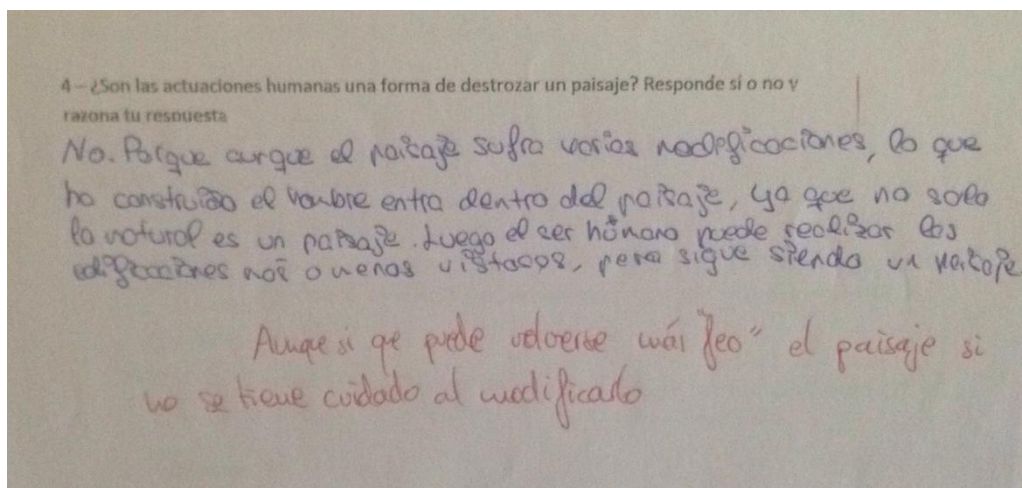 4 – ¿Son las actuaciones humanas una forma de destrozar un paisaje? Responde si o no y
razona tu respuesta
No. Porque aunque el paisaje sufra varias modificaciones, lo que
ha construido el hombre entra dentro del paisaje, ya que no solo
lo natural es un paisaje. Luego el ser humano puede realizar las
edificaciones más o menos vistosas, pero sigue siendo un paisaje
Aunque si que puede volverse más "feo" el paisaje si
no se tiene cuidado al modificarlo